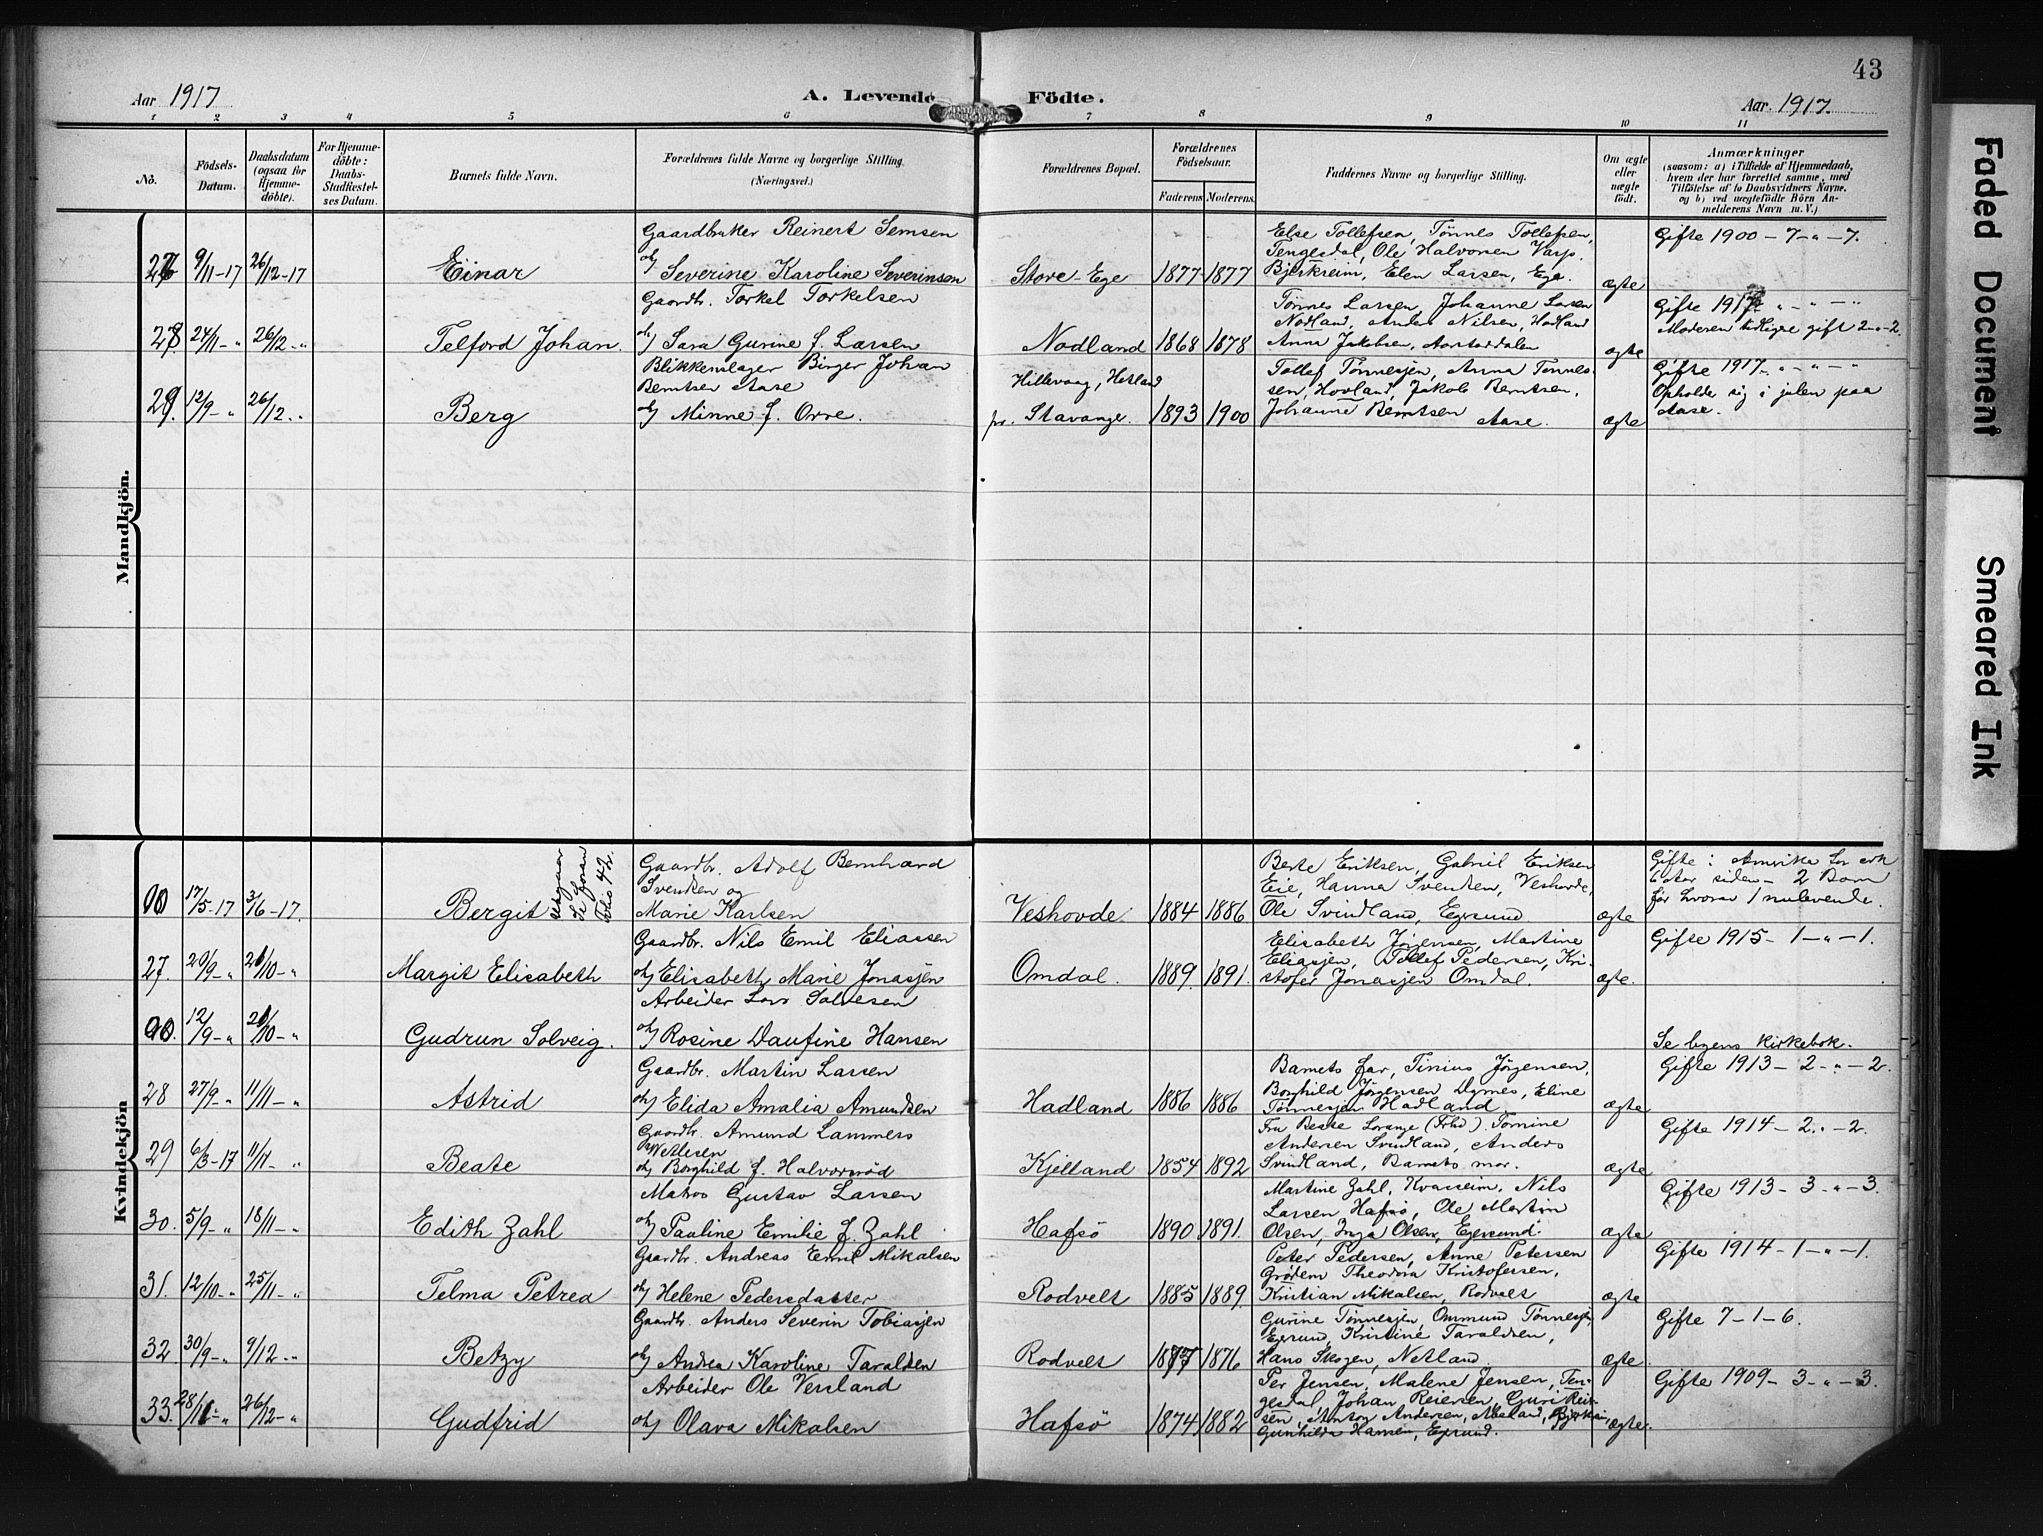 43
Aar 1917
A. Levende Födte.
Aar. 1917.
1 2 3 4 5 6 7 8 9 10 11
No.
Födsels-Datum.
Daabsdatum (ogsaa for Hjemmedöbte).
For Hjemmedöbte: Daabs-Stadfæstelses Datum.
Barnets fulde Navn.
Forældrenes fulde Navne og borgerlige Stilling.
(Næringsvei.)
Forældrenes Bopæl.
Forældrenes Födselsaar.
Faderens Moderens
Faddernes Navne og borgerlige Stilling.
Om ægte eller uægte födt.
Anmærkninger
(saasom: a) i Tilfælde af Hjemmedaab,
hvem der har forrettet samme, med
Tilföielse af to Daabsvidners Navne,
og b) ved uægtefödte Börn An-
melderens Navn m.V.)
Mandkjön.
Gaardbruker Reinert Semsen
27 9/11-17 26/12-17 Einar og Severine Karoline Severinsen Store-Ege 1877 1877
Else Tollefsen, Tønnes Tollefsen,
Tengesdal, Ole Halvorsen Varp,
Bjerkreim, Elen Larsen, Ege.
ægte
Gifte 1900 - 7 - „ - 7.
Gaardbr. Torkel Torkelsen
28. 24/11 - „ 26/12 - „ Telford Johan. og Sara Gurine f. Larsen Nodland 1868 1878
Tønnes Larsen, Johanne Larsen
Nodland, Anders Nilsen, Hodland
Anna Jakobsen, Aarstaddalen
ægte
Gifte 1917 - „ - „ - „
Moderen tidligre gift 2 - „ - 2.
Blikkenslager Birger Johan
Berntsen Aase
29. 12/9 - „ 26/12 - „ Berg og Minne f. Orre.
Hillevaag, Hetland
pr. Stavanger. 1893 1900
Tollef Tønnesen, Anna Tønnes-
sen, Hovland, Jakob Berntsen,
Johanne Berntsen Aase.
ægte
Gifte 1917 - „ - „ - „
Opholder sig i julen paa
Aase.
Kvindekjön
Gaardbr. Adolf Bernhard
Svendsen og
00 17/5-17 3/6-17. Bergit Marie Karlsen Veshovde 1884 1886
Folio 42.
Berte Eriksen, Gabriel Eriksen
Eie, Hanna Svendsen, Veshovde,
Ole Svindland, Egersund.
ægte
Gifte i Amerika for ca
6 aar siden - 2 Barn
før hvorav 1 nulevende.
Gaardbr. Nils Emil Eliassen
27. 20/9 - „ 21/10 - „ Margit Elisabeth og Elisabeth Marie Jonassen Omdal. 1889. 1891.
Elisabeth Jørgensen, Martine
Eliassen, Tollef Pedersen, Kri-
stofer Jonassen Omdal.
ægte.
Gifte 1915 - 1 - „ - 1.
Arbeider Lars Salvesen
00. 12/9 - „ 21/10 - „ Gudrun Solveig. og Rosine Daufine Hansen
Se byens kirkebok.
Gaardbr. Martin Larsen
28 27/9 - „ 11/11 - „ Astrid og Elida Amalia Amundsen Hadland 1886 1886
Barnets far, Tinius Jørgensen,
Borghild Jørgensen, Dyrnes, Eline
Tønnessen Hadland
ægte
Gifte 1913 - 2 - „ - 2.
Gaardbr. Amund Lammers
29 6/3-17 11/11 - „ Beate og Borghild f. Halvorsrød Kjelland 1854 1892
Fru Berte Lorange (Frhd). Tomine
Andersen Svindland, Anders
Svindland, Barnets mor.
ægte
Gifte 1914 - 2 - „ - 2.
Matros Gustav Larsen
30. 5/9 - „ 18/11 - „ Edith Zahl og Pauline Emilie f. Zahl Hafsø 1890 1891.
Martine Zahl, Kvasseim, Nils
Larsen Hafsø, Ole Martin
Olsen, Inga Olsen, Egersund.
ægte
Gifte 1913 - 3 - „ - 3.
Gaardbr. Andreas Emil Mikalsen
31. 12/10 - „ 25/11 - „ Telma Petrea og Helene Pedersdatter Rodvelt 1885 1889.
Peter Pedersen, Anne Petersen
Grødem Theodora Kristofersen,
Kristian Mikalsen, Rodvelt
ægte
Gifte 1914 - 1 - „ - 1.
Gaardbr. Anders Severin Tobiassen
32 30/9 - „ 9/12 - „ Betzy og Andrea Karoline Taraldsen Rodvelt 1877 1876
Gurine Tønnessen, Ommund Tønnessen,
Egersund, Kristine Taraldsen,
Hans Skogen, Netland.
ægte.
Gifte 7 - 1 - 6.
Arbeider Ole Versland
33. 28/11 - „ 26/12 - „ Gudfrid og Olava Mikalsen Hafsø 1874 1882
Per Jensen, Malene Jensen, Ten-
gesdal, Johan Reiersen, Guri Reier-
sen, Anton Andersen,
Gunhilda Hansen, Egersund.
ægte.
Gifte 1909 - 3 - „ - 3.
Faded Document
Smeared Ink